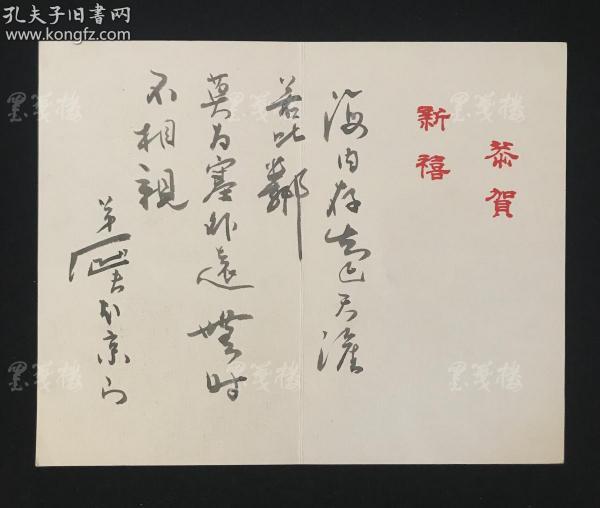 孔夫子旧书网
www.kongfz.com
恭賀
新禧
海内存知己天涯
若比鄰
莫为塞外遠 無时
不相親
弟
京
墨箋樓
墨箋樓
墨箋樓
墨箋樓